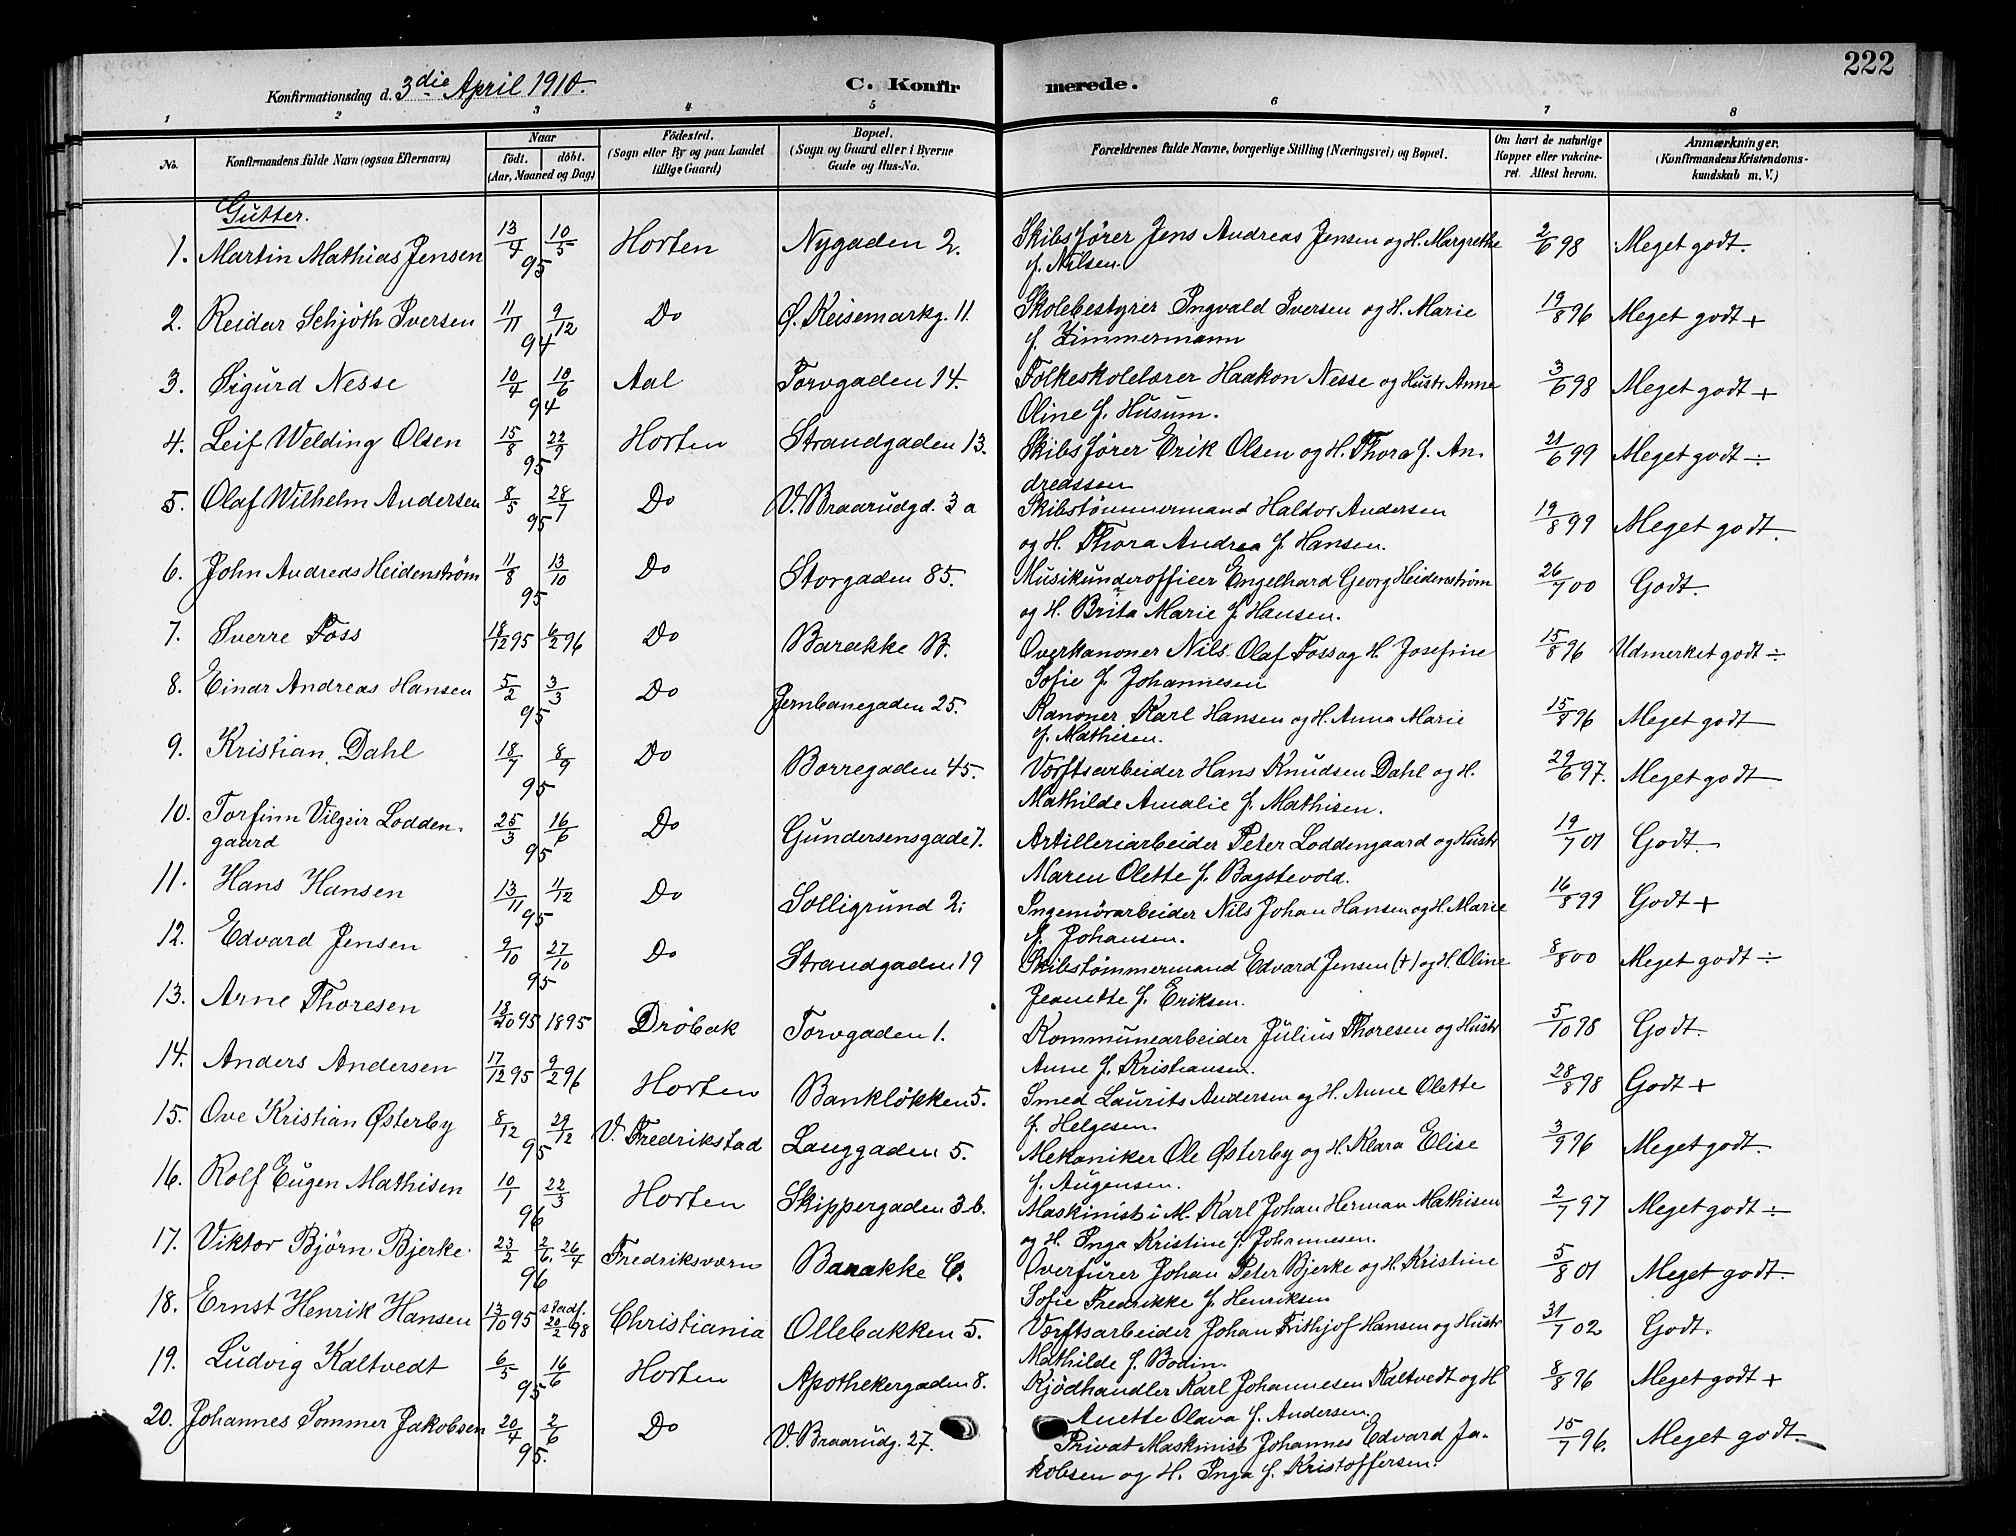 222
Konfirmationsdag d. 3die April 1910.
C. Konfirmerede.
1 2 3 4 5 6 7 8
No. Konfirmandens fulde Navn (ogsaa Efternavn) Naar født. døbt. (Aar, Maaned og Dag) Fødested. (Sogn eller By og paa Landet tillige Gaard) Bopæl. (Sogn og Gaard eller i Byerne Gade og Hus-No. Forældrenes fulde Navne, borgerlige Stilling (Næringsvei) og Bopæl. Om havt de naturlige Kopper eller vakcineret. Attest herom. Anmærkninger. (Konfirmandens Kristendomskundskab m. V.)
Gutter.
1. Martin Mathias Jensen 13/4 10/5 95 Horten Nygaden 2. Skibsfører Jens Andreas Jensen og H. Margrethe f. Nilsen. 2/6 98 Meget godt.
2. Reidar Schjøth Iversen 11/11 9/12 94 Do Ø. Keisemarkg. 11 Skolebestyrer Ingvald Iversen og H. Marie f. Zimmermann 19/8 96 Meget godt +
3. Sigurd Nesse 10/4 10/6 94 Aal Torvgaden 14. Folkeskolelærer Haakon Nesse og Hustr Anne Oline f. Husum. 3/6 98 Meget godt +
4. Leif Welding Olsen 15/8 22/9 95 Horten Strandgaden 13. Skibsfører Erik Olsen og H. Thora f. Andreassen 21/6 99 Meget godt ÷
5. Olaf Wilhelm Andersen 8/5 28/7 95 Do V. Braarudgd. 3 a Skibstømmermand Haldor Andersen og H. Thora Andrea f. Hansen. 19/8 99 Meget godt.
6. John Andreas Heidenstrøm 11/8 13/10 95 Do Storgaden 85. Musikunderofficer Engelhard Georg Heidenstrøm og H. Brita Marie f. Hansen. 26/7 00 Godt.
7. Sverre Foss 18/12 95 6/2 96 Do Barakke B. Overkanoner Nils Olaf Foss og H. Josefine Sofie f. Johannesen 15/8 96 Udmerket godt ÷
8. Einar Andreas Hansen 5/2 3/3 95 Do Jernbanegaden 25. Kanoner Karl Hansen og H. Anna Marie f. Mathisen. 15/8 96 Meget godt
9. Kristian Dahl 18/7 8/9 95 Do Borregaden 45. Værftsarbeider Hans Knudsen Dahl og H. Mathilde Amalie f. Mathisen. 29/6 97. Meget godt
10. Torfinn Vilgeir Loddengaard 25/3 16/6 95 Do Gundersensgade 7. Artilleriarbeider Peter Loddengaard og Hustr Maren Olette f. Bagstevold. 19/7 01 Godt.
11. Hans Hansen 13/11 4/12 95 Do Solligrund 2. Ingeniørarbeider Nils Johan Hansen og H. Marie f. Johansen. 16/8 99 Godt +
12. Edvard Jensen 9/10 27/10 95 Do Strandgaden 19 Skibstømmermand Edvard Jensen (+) og H. Oline Jeanette f. Eriksen. 8/8 00 Meget godt ÷
13. Arne Thoresen 95 1895 Drøbak Torvgaden 1. Kommunearbeider Julius Thoresen og Hustr Anne f. Kristiansen. 5/10 98 Godt.
14. Anders Andersen 17/12 95 9/2 96 Horten Bankløkken 5. Smed Laurits Andersen og H. Anne Olette f. Helgesen. 28/8 98 Godt +
15. Ove Kristian Østerby 8/12 29/12 95 V. Fredrikstad Langgaden 5. Mekaniker Ole Østerby og H. Klara Elise f. Augensen. 3/9 96 Meget godt.
16. Rolf Eugen Mathisen 10/1 22/3 96 Horten Skippergaden 3 b. Maskinist i M. Karl Johan Herman Mathisen og H. Inga Kristine f. Johannesen. 2/7 97 Meget godt ÷
17. Viktor Bjørn Bjerke 23/2 2/6. 26/4 96 Fredriksværn Barakke C. Overfurer Johan Peter Bjerke og H. Kristine Sofie Fredrikke f. Henriksen 5/8 01 Meget godt.
18. Ernst Henrik Hansen 13/10 95 stadf. 20/2 98 Christiania Ollebakken 5. Værftsarbeider Johan Frithjof Hansen og Hustr Mathilde f. Bodin. 31/7 02 Godt.
19. Ludvig Kaltvedt 6/5 16/6 95 Horten Apothekergaden 8. Kjødhandler Karl Johannesen Kaltvedt og H Anette Olava f. Andersen. 8/8 96 Meget godt +
20. Johannes Sommer Jakobsen 20/4 2/6 95. Do V. Braarudg. 27. Privat Maskinist Johannes Edvard Jakobsen og H. Inga f. Kristoffersen. 15/7 96. Meget godt.